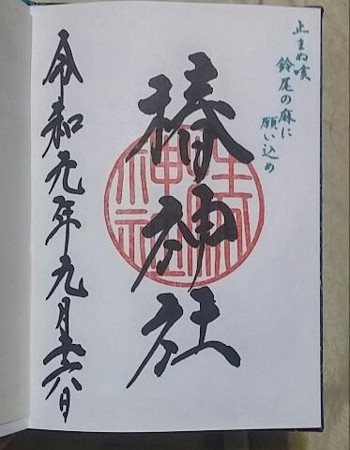 止まぬ咳
鈴尾の麻に
願い込め
椿神社
令和元年九月十六日